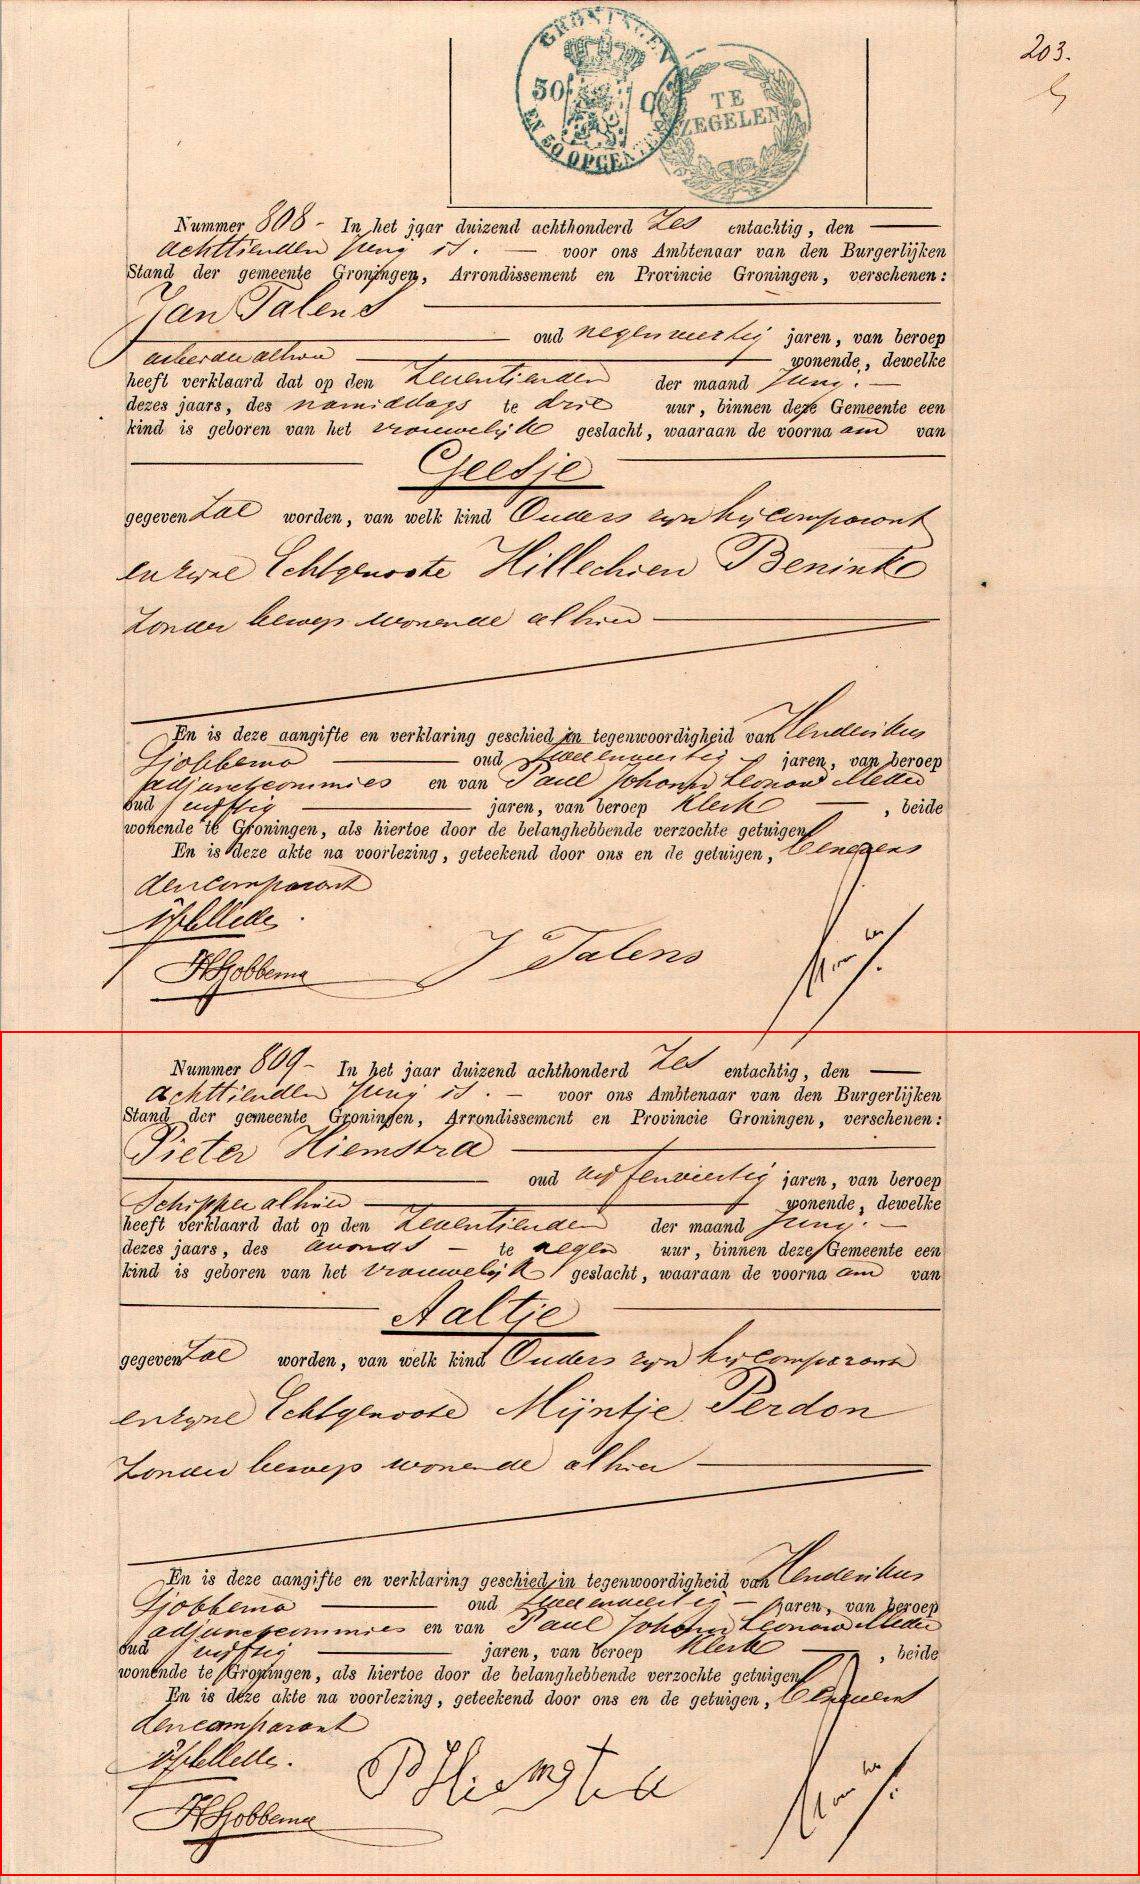 203.
GRONINGEN
50 C
EN 50 OPCENTEN
TE
ZEGELEN
Nummer 808 - In het jaar duizend achthonderd Zes entachtig, den
achttienden Junij is. voor ons Ambtenaar van den Burgerlijken
Stand der gemeente Groningen, Arrondissement en Provincie Groningen, verschenen:
Jan Talens
oud negenveertig jaren, van beroep
alhier wonende, dewelke
heeft verklaard dat op den Zeventienden der maand Junij. -
dezes jaars, des namiddags te drie uur, binnen deze Gemeente een
kind is geboren van het vrouwelijk geslacht, waaraan de voorna am van
Geesje
gegeven zal worden, van welk kind Ouders zijn hij comparant
en zijne Echtgenoote Hillechien Benink
zonder beroep wonende alhier
En is deze aangifte en verklaring geschied in tegenwoordigheid van Henderikus
Sjobbema oud tweeenveertig jaren, van beroep
adjunctcommies en van Paul Johann Leonard Meder
oud vijftig jaren, van beroep Klerk , beide
wonende te Groningen, als hiertoe door de belanghebbende verzochte getuigen
En is deze akte na voorlezing, geteekend door ons en de getuigen, benevens
den comparant
HSjobbema
J Talens
Nummer 809 - In het jaar duizend achthonderd Zes entachtig, den
achttienden Junij is. - voor ons Ambtenaar van den Burgerlijken
Stand der gemeente Groningen, Arrondissement en Provincie Groningen, verschenen:
Pieter Hiemstra
oud vijfenveertig jaren, van beroep
Schipper alhier wonende, dewelke
heeft verklaard dat op den Zeventienden der maand Junij. -
dezes jaars, des avonds - te negen uur, binnen deze Gemeente een
kind is geboren van het vrouwelijk geslacht, waaraan de voorna am van
Aaltje
gegeven zal worden, van welk kind Ouders zijn hij comparant
en zijne Echtgenoote Mijntje Perdon
zonder beroep wonende alhier
En is deze aangifte en verklaring geschied in tegenwoordigheid van Henderikus
Sjobbema oud tweeenveertig - jaren, van beroep
adjunctcommies en van Paul Johann Leonard Meder
oud vijftig jaren, van beroep Klerk , beide
wonende te Groningen, als hiertoe door de belanghebbende verzochte getuigen
En is deze akte na voorlezing, geteekend door ons en de getuigen, benevens
den comparant
P Hiemstra
HSjobbema